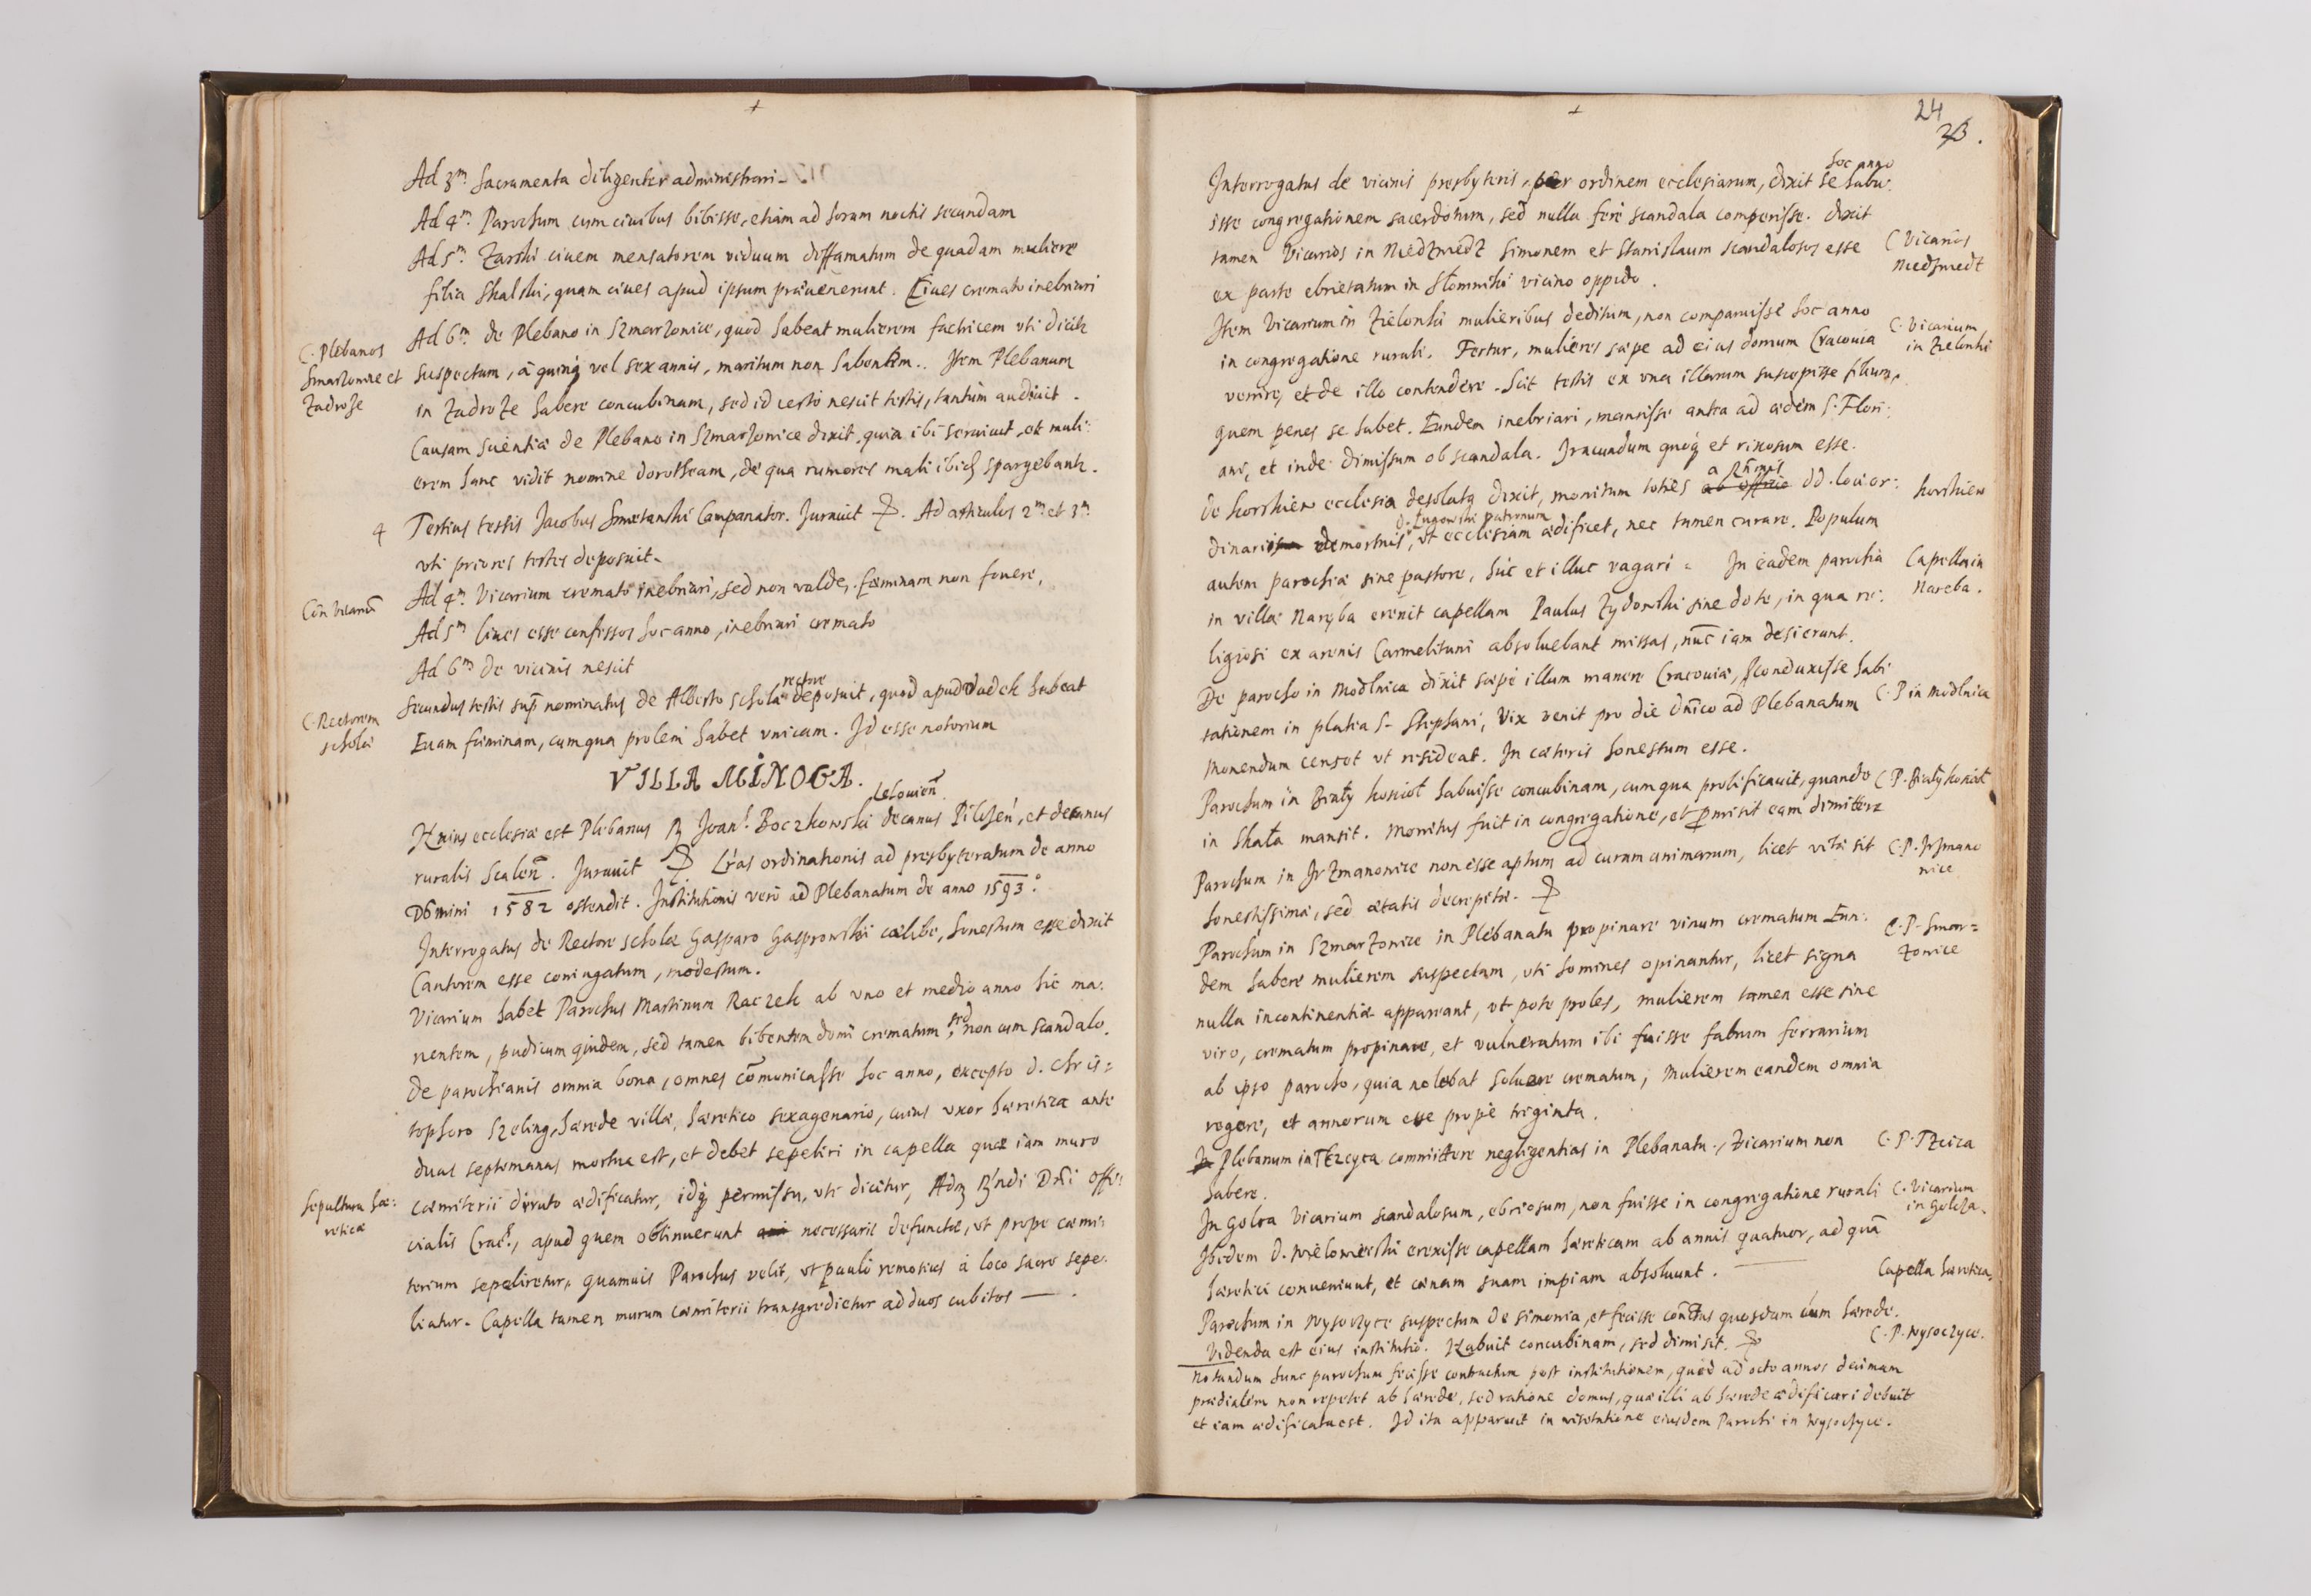 Ad 3m. Sacramenta diligenter administrari.
Ad 4m. Parochum cum ciuibus bibisse, etiam ad horam noctis secundam
Ad 5m. Zarski ciuem mensatorem viduum diffamatum de quadam muliere
filia Skalski, quam ciues apud ipsum praeuenerunt. Ciues cremato inebriari
C. Plebanos
Smarzouice et
Zadroze
Ad 6m. de Plebano in Szmarzouice, quod habeat mulierem factricem vti dicit
suspectam, à quinq vel sex annis, maritum non habentem. Item Plebanum
in Zadroze habere concubinam, sed id certo nescit testis, tantùm audiuit.
Causam scientiae de Plebano in Szmarzouice dixit, quia ibi seruiuit, et muli-
erem hanc vidit nomine dorotheam, de qua rumores mali ibid spargebant.
4 Tertius testis Jacobus Smetanski Campanator. Jurauit. Ad articulos 2m et 3m
vti priores testes deposuit.
Con Vicariũ
Ad 4m. Vicarium cremato inebriari, sed non valde, foeminam non fouere,
Ad 5m Ciues esse confessos hoc anno, inebriari cremato
Ad 6m de vicinis nescit
C. Rectorem
scholae
Secundus testis sup nominatus de Alberto scholae rectore deposuit, quod apud dudek habeat
Euam foeminam, cum qua prolem habet vnicam. Id esse notorium
VILLA MINOGA.
Huius ecclesiae est Plebanus R Joan: Boczkowski decanus Pilczen, Lelouien et decanus
ruralis Scalen. Jurauit Lras ordinationis ad presbyteratum de anno
Domini 1582 ostendit. Institutionis verò ad Plebanatum de anno 1593.
Interrogatus de Rectore scholae Gasparo Gasprowski caelibe, honestum esse dixit
Cantorem esse coniugatum, modestum.
Vicarium habet Parochus Martinum Raczek ab vno et medio anno hic ma-
nentem, pudicum quidem, sed tamen bibentem domi crematum, sed non cum scandalo.
De parochianis omnia bona, omnes cõmunicasse hoc anno, excepto d. Chris=
tophoro Szeling, haerede villae, haeretico sexagenario, cuius vxor haeretica ante
duas septomanas mortua est, et debet sepeliri in capella quae iam muro
Sepultura hae-
reticae
caemiterii diruto aedificatur, idq permissu, vti dicitur, Adm Rndi Dni Offi-
cialis Crac., apud quem obtinuerunt necessarii defunctae, vt prope caemi-
terium sepeliretur, quamuis Parochus velit, vt paulò remotius à loco sacro sepe-
liatur. Capella tamen murum caemiterii transgredietur ad duos cubitos.
24
23.
Interrogatus de vicinis presbyteris, per ordinem ecclesiarum, dixit se hoc anno habu-
isse congregationem sacerdotum, sed nulla ferè scandala comperisse. dixit
C Vicarios
Niedzwedz
tamen Vicarios in Niedzwedz Simonem et Stanislaum scandalosos esse
ex parte ebrietatum in Slomniki vicino oppido.
C. Vicarium
in Zielonki
Item Vicarium in Zielonki mulieribus deditum, non comparuisse hoc anno
in congregatione rurali. Fertur, mulieres saepe ad eius domum Cracouia
venire, et de illo contendere. Scit testis ex vna illarum suscepisse filium,
quem penes se habet. Eundem inebriari, mansisse antea ad aedem S. Flori-
ani, et inde dimissum ob scandala. Iracundum quoq et rixosum esse.
Korzkiew
De Korzkiew ecclesia desolata dixit, monitum toties dd. loci or-
dinariis, d. Lugowski paternum vt ecclesiam aedificet, nec tamen curare. Populum
autem parochiae sine pastore, hùc et illuc vagari. In eadem parochia
Capella in
Nareba.
in villa Naręba erexit capellam Paulus Zydowski sine dote, in qua re-
ligiosi ex arenis Carmelitani absoluebant missas, nũc iam desierunt.
C. P in Modlnica
De parocho in Modlnica dixit saepè illum manere Cracouiae, conduxisse habi-
tationem in platea S. Stephani, Vix venit pro die dnico ad Plebanatum
Monendum censet vt resideat. In caeteris honestum esse.
C P. Bialy kosciol
Parochum in Bialy kosciol habuisse concubinam, cum qua prolificauit, quando
in Skala mansit. Monitus fuit in congregatione, et pmisit eam dimittere
C. P. Irzmano
nice
Parochum in Irzmanowice non esse aptum ad curam animarum, licet vitae sit
honestissimae, sed aetatis decrepitae.
C. P. Smar=
zouice
Parochum in Szmarzouice in Plebanatu propinare vinum crematum Eun-
dem habere mulierem suspectam, vti homines opinantur, licet signa
nulla incontinentiae appareant, vt pote proles, mulierem tamen esse sine
viro, crematum propinare, et vulneratum ibi fuisse fabrum ferrarium
ab ipso parocho, quia nolebat soluere crematum, Mulierem eandem omnia
regere, et annorum esse propè triginta.
C. P. Tzcica
Plebanum in Tczcyca committere negligentias in Plebanatu, Vicarium non
habere.
C. Vicarium
in Golcza.
In Golcza Vicarium scandalosum, ebriosum, non fuisse in congregatione rurali
Ibidem d. Wielowieski erexisse capellam haereticam ab annis quatuor, ad quã
Capella haeretica,
haeretici conueniunt, et caenam suam impiam absoluunt.
Parochum in Wysoczyce suspectum de simonia, et fecisse contractus quosdam cum haerede.
C. P. Wysoczyce.
Videnda est eius institutio. Habuit concubinam, sed dimisit.
Notandum hunc parochum fecisse contractum post institutionem, quòd ad octo annos decimam
praedialem non repetet ab haerede, sed ratione domus, quae illi ab haerede aedificari debuit
et iam aedificata est. Id ita apparuit in visitatione eiusdem Parochi in Wysoczyce.